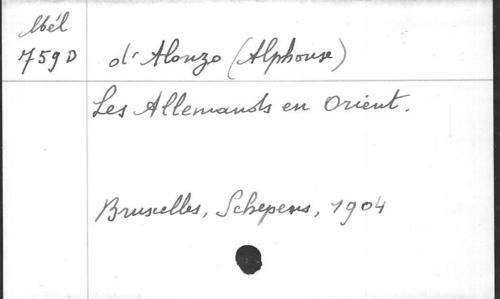 Mél
759 D
d'Alonzo (Alphonse)
Les Allemands en Orient.
Bruxelles, Schepens, 1904